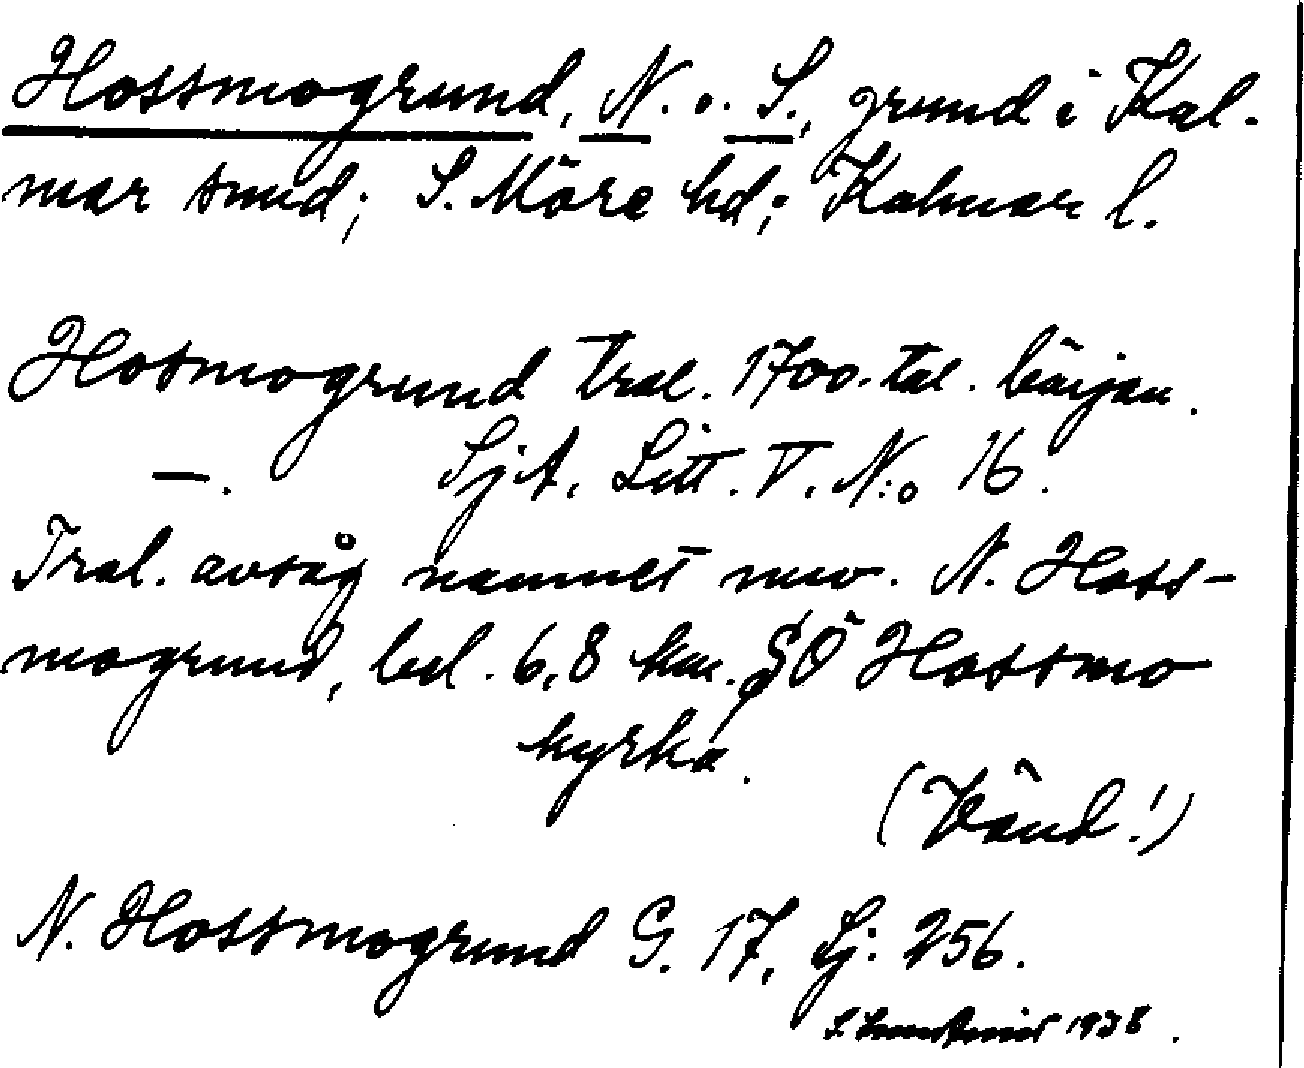 Hossmogrund, N. o. S., grund i Kal-
mar sund; S. Möre hd; Kalmar l.
Hosmogrund tral. 1700-tal. början.
—. SjA, Litt. V. N:o 16.
Tral. avsåg namnet nuv. N. Hoss-
mogrund, bel. 6,8 km. SÖ Hossmo
kyrka.
(Vänd!)
N. Hossmogrund G. 17, Sj. 256.
1938.